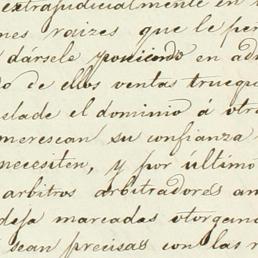 extrajudicialmente en
nes raizes que le per
dársele posiciones en ad
do de ellos ventas trueque
slade el dominio á otro
merescan su confianza
necesiten, y por ultimo
arbitros arbitradores am
deja marcadas otorgand
sean precisas con las r